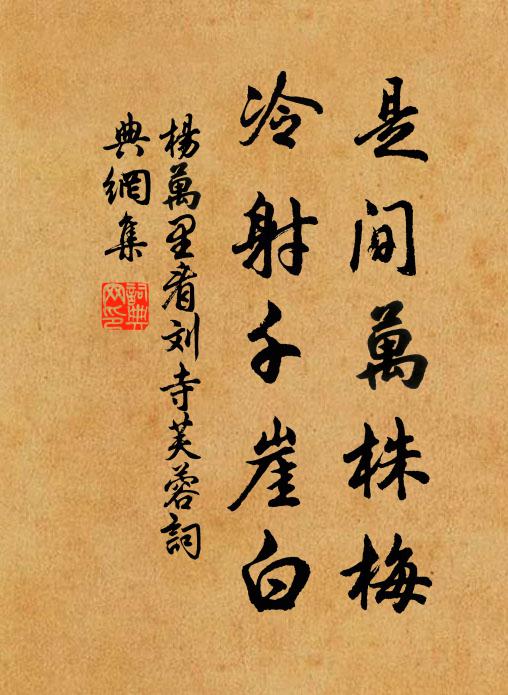 是间萬株梅
冷射千崖白
楊萬里看刘寺芙蓉詞
典網集
詞典網印